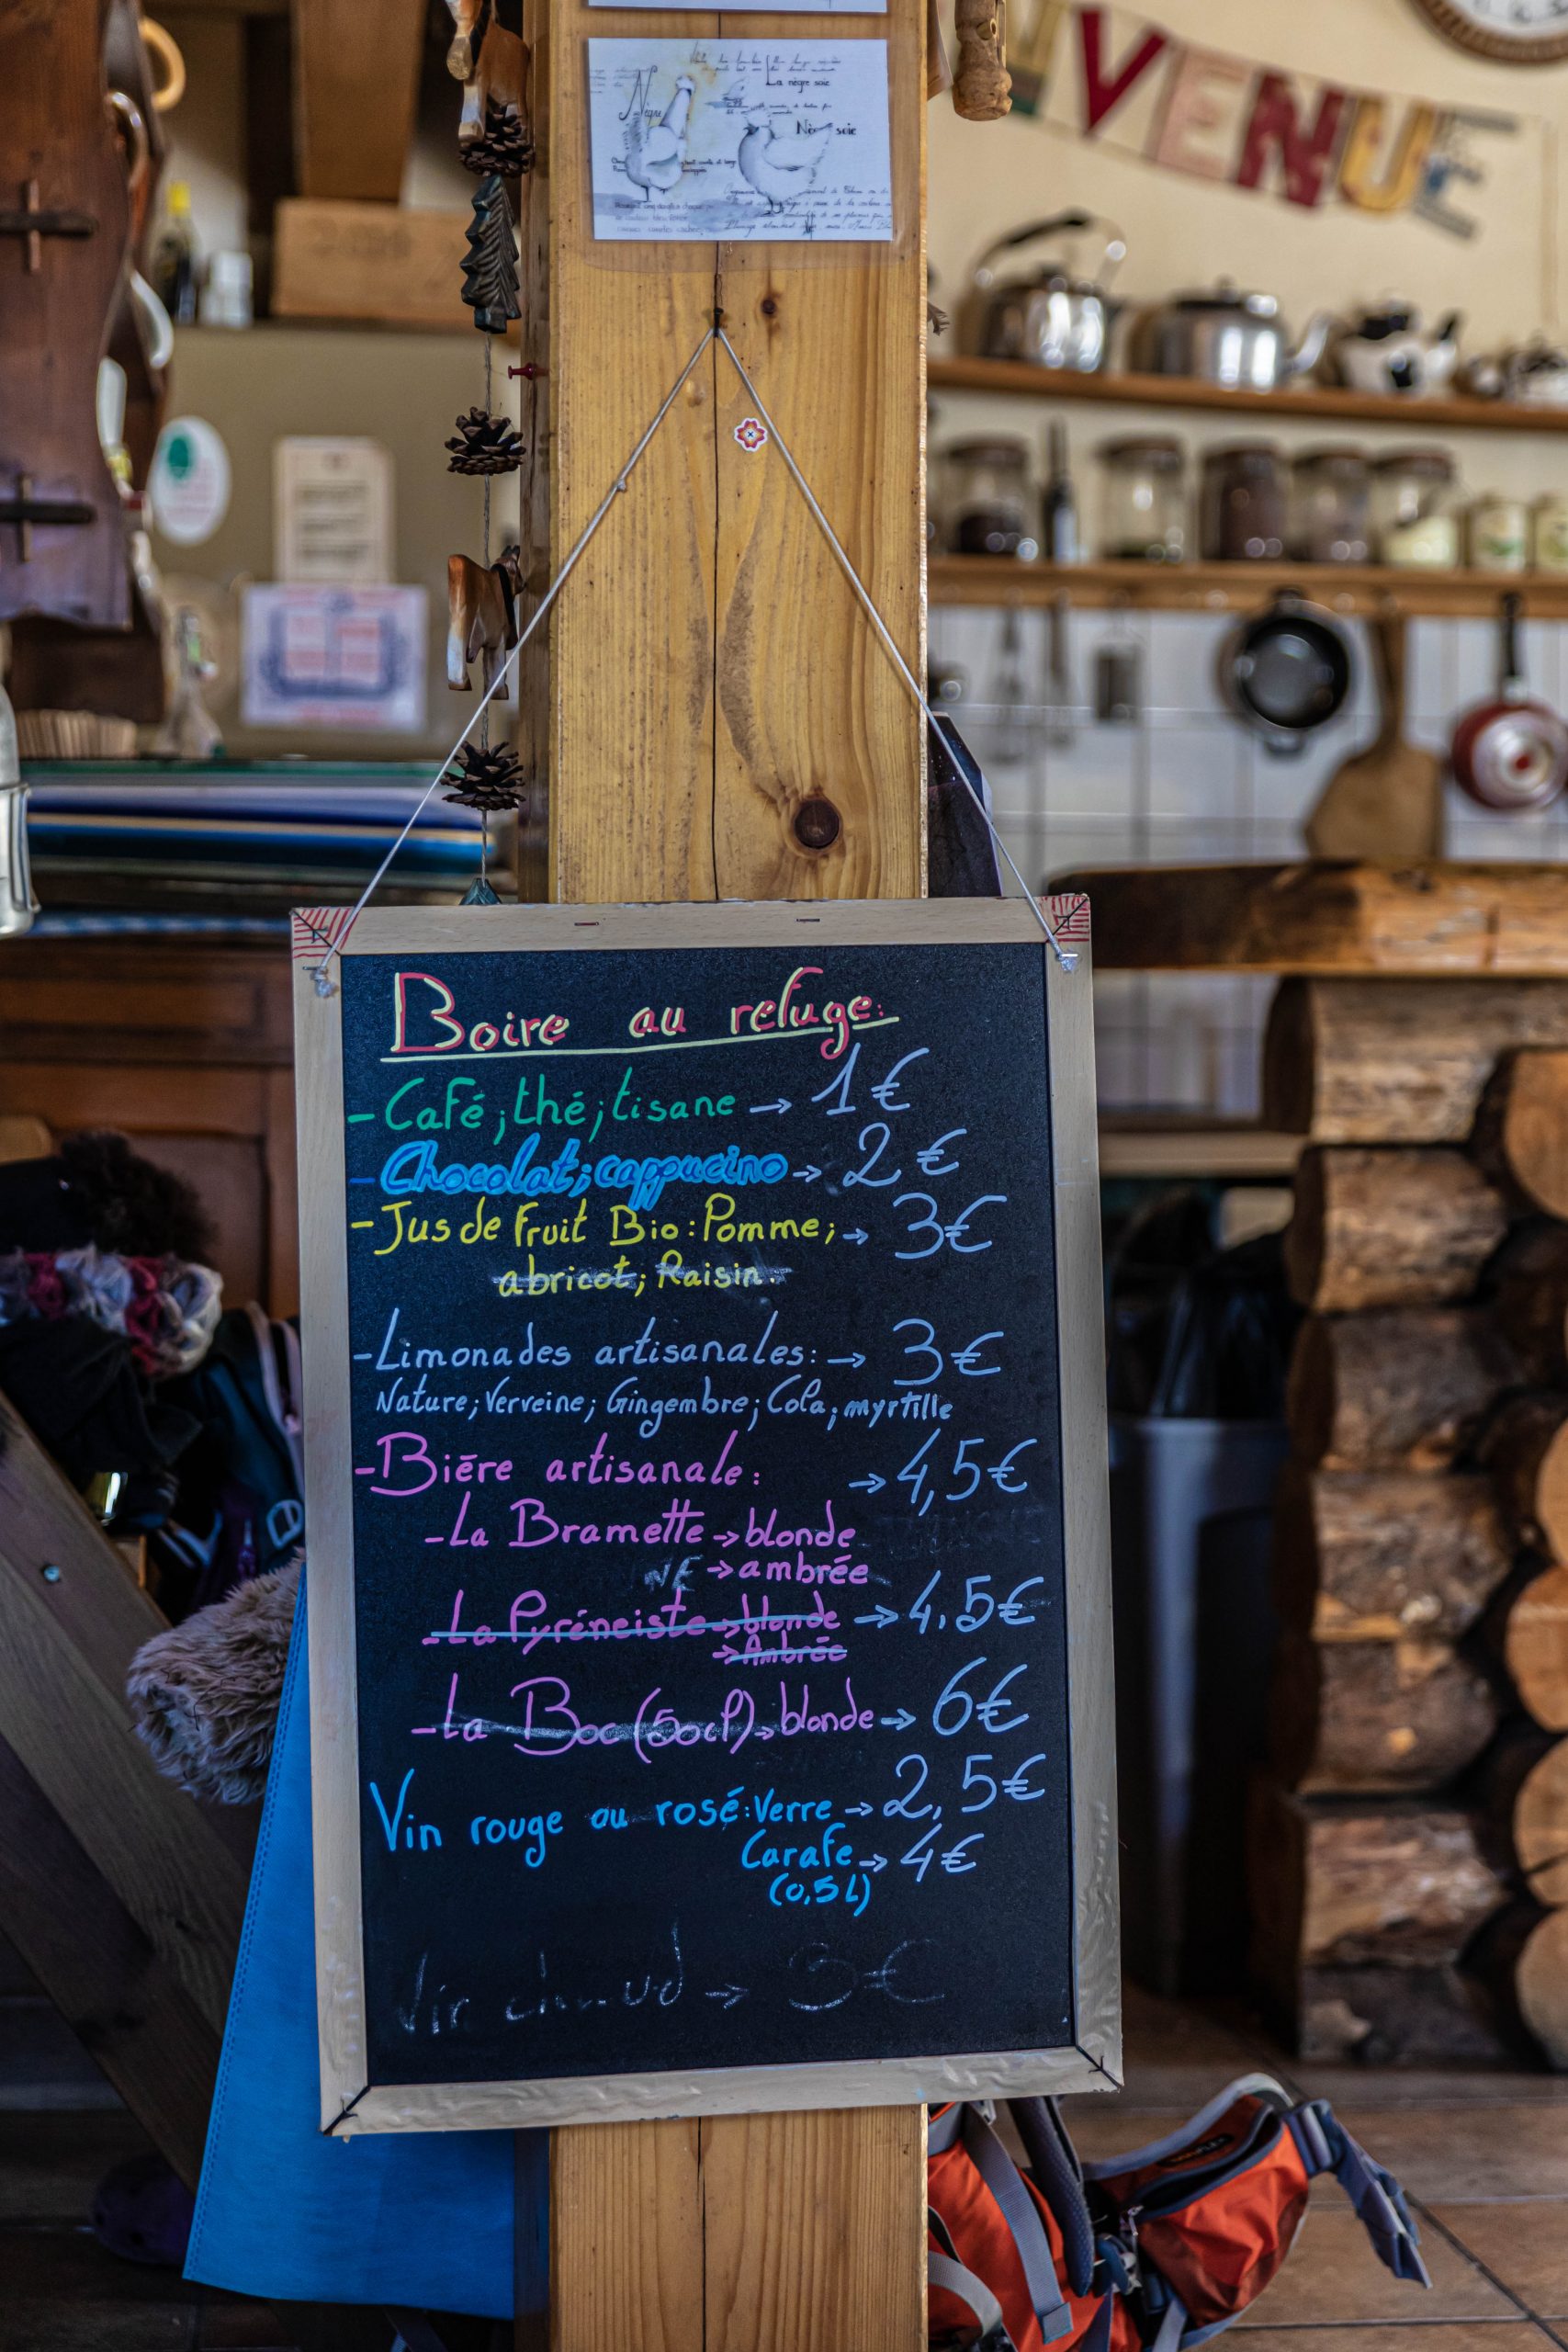 Nègre
La nègre soie
soie
VENUE
Boire au refuge:
- Café; thé; tisane → 1€
- Chocolat; cappucino → 2€
- Jus de fruit Bio: Pomme; → 3€
abricot; Raisin.
- Limonades artisanales: → 3€
Nature; Verveine; Gingembre; Cola; myrtille
- Bière artisanale: → 4,5€
- La Bramette → blonde
NE → ambrée
- La Pyréneiste → blonde → 4,5€
→ Ambrée
- La Boc (50cl) → blonde → 6€
Vin rouge ou rosé: Verre → 2,5€
Carafe → 4€
(0,5L)
Vin chaud → 3€